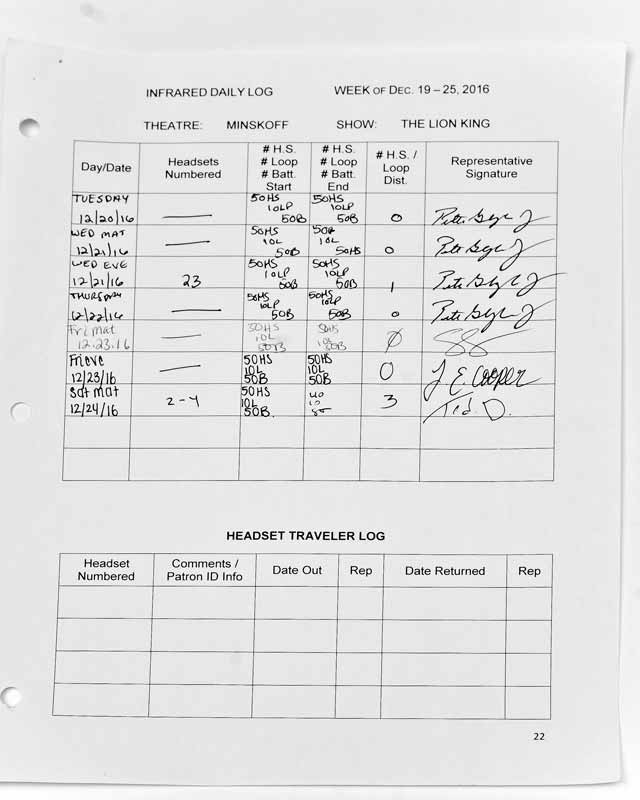 INFRARED DAILY LOG WEEK OF DEC. 19 – 25, 2016
THEATRE: MINSKOFF SHOW: THE LION KING
Day/Date
Headsets
Numbered
# H.S.
# Loop
# Batt.
Start
# H.S.
# Loop
# Batt.
End
# H.S. /
Loop
Dist.
Representative
Signature
TUESDAY
12/20/16
—
50HS
10LP
50B
50HS
10LP
50B
0
WED MAT
12/21/16
—
50HS
10L
50B
50B
10L
50HS
0
WED EVE
12/21/16
23
50HS
10LP
50B
50HS
10LP
50B
1
THURSDAY
12/22/16
—
50HS
10LP
50B
50HS
10LP
50B
0
Fri mat
12.23.16
—
50HS
10L
50B
50HS
10L
50B
0
Fri eve
12/23/16
—
50HS
10L
50B
50HS
10L
50B
0
J. E. Cooper
Sat mat
12/24/16
2-4
50HS
10L
50B
3
Ted D.
HEADSET TRAVELER LOG
Headset
Numbered
Comments /
Patron ID Info
Date Out
Rep
Date Returned
Rep
22